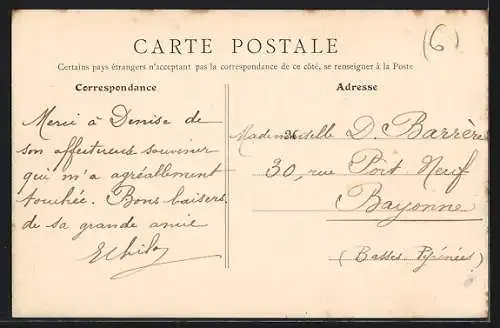 (6)
CARTE POSTALE
Certains pays étrangers n'acceptant pas la correspondance de ce côté, se renseigner à la Poste
Correspondance
Merci à Denise de
son affectueux souvenir
qui m'a agréablement
touchée. Bons baisers
de sa grande amie
Adresse
Mademoiselle D. Barrère
30, rue Port Neuf
Bayonne
(Basses-Pyrénées)